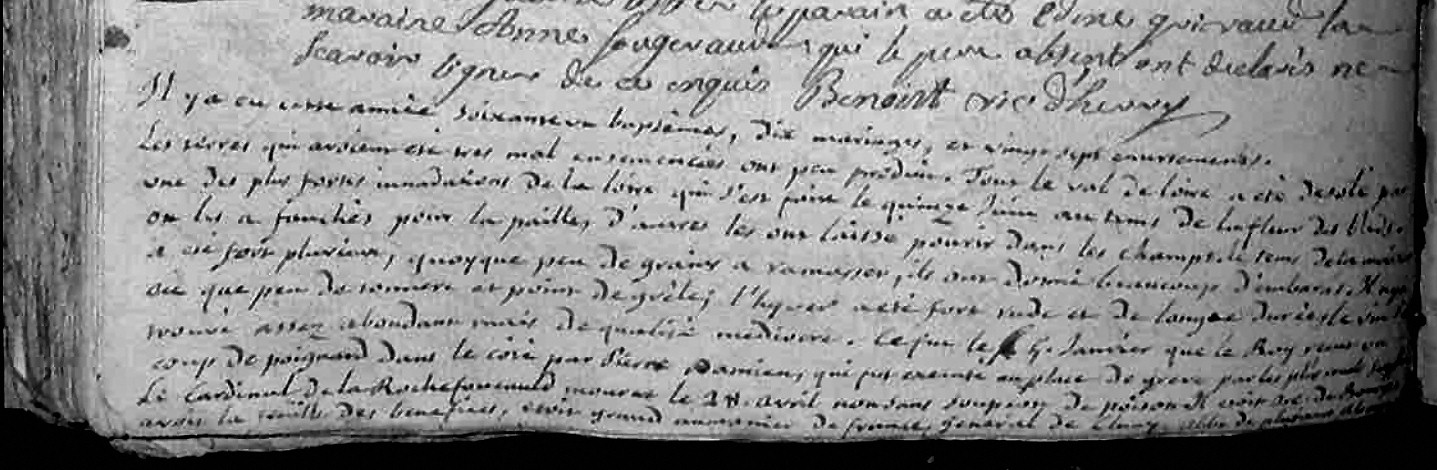 parain a été Edme
maraine Anne fougeraud qui le pere absent ont declaré ne
scavoir signer de ce enquis Benoist vic d'hevry
Il y a eu cette année soixante un baptêmes, dix mariages, et vingt sept enterrements.
Les terres qui avoient été tres mal ensemencées ont peu produit. Tout le val de loire a été desolé par
une des plus fortes inondations de la loire qui s'est faite le quinze juin au tems de la fleur des bleds.
on les a fauchés pour la paille, d'autres les ont laissé pourir dans les champs. le tems de la moisson
a été fort pluvieux, quoyque peu de grains a ramasser, ils ont donné beaucoup d'embaras. Il n'y a
eu que peu de tonnere et point de grêle; l'hyver a été fort rude et de longue durée. le vin s'est
trouvé assez abondant mais de qualité mediocre. Ce fut le 5. Janvier que le Roy reçut un
coup de poignard dans le côté par Pierre Damiens, qui fut executé en place de greve par les plus rudes
Le Cardinal de la Rochefoucauld mourut le 28. avril non sans soupçon de poison Il etoit arc. de Bourges
avoit la feuille des benefices, etoit grand aumonier de france, general de Cluny, abbé de plusieurs